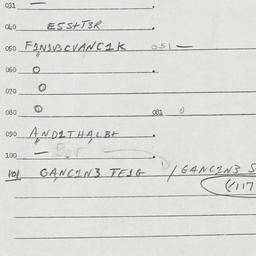 031 —
040 ESSHT3R
050 F2N1V3CVANC1K 051 —
060 O
070 O
080 O 081 O
090 AND1THALBH
100 —
101 GANC2N3 TF1G / GANC2N3 S
(/117